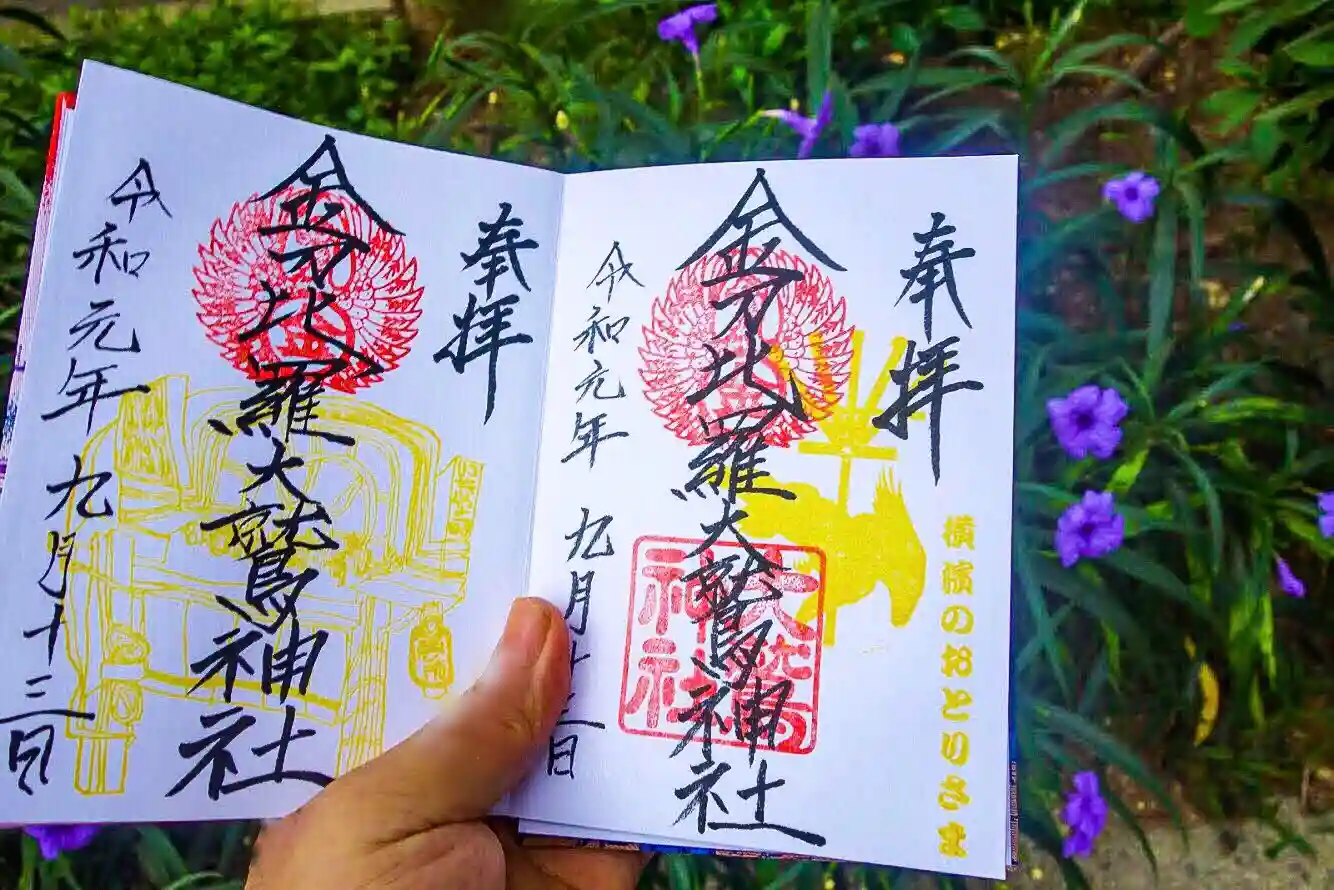 奉拝
金刀比羅大鷲神社
令和元年 九月十二日
横濱のおとりさま
奉拝
金刀比羅大鷲神社
令和元年 九月十二日